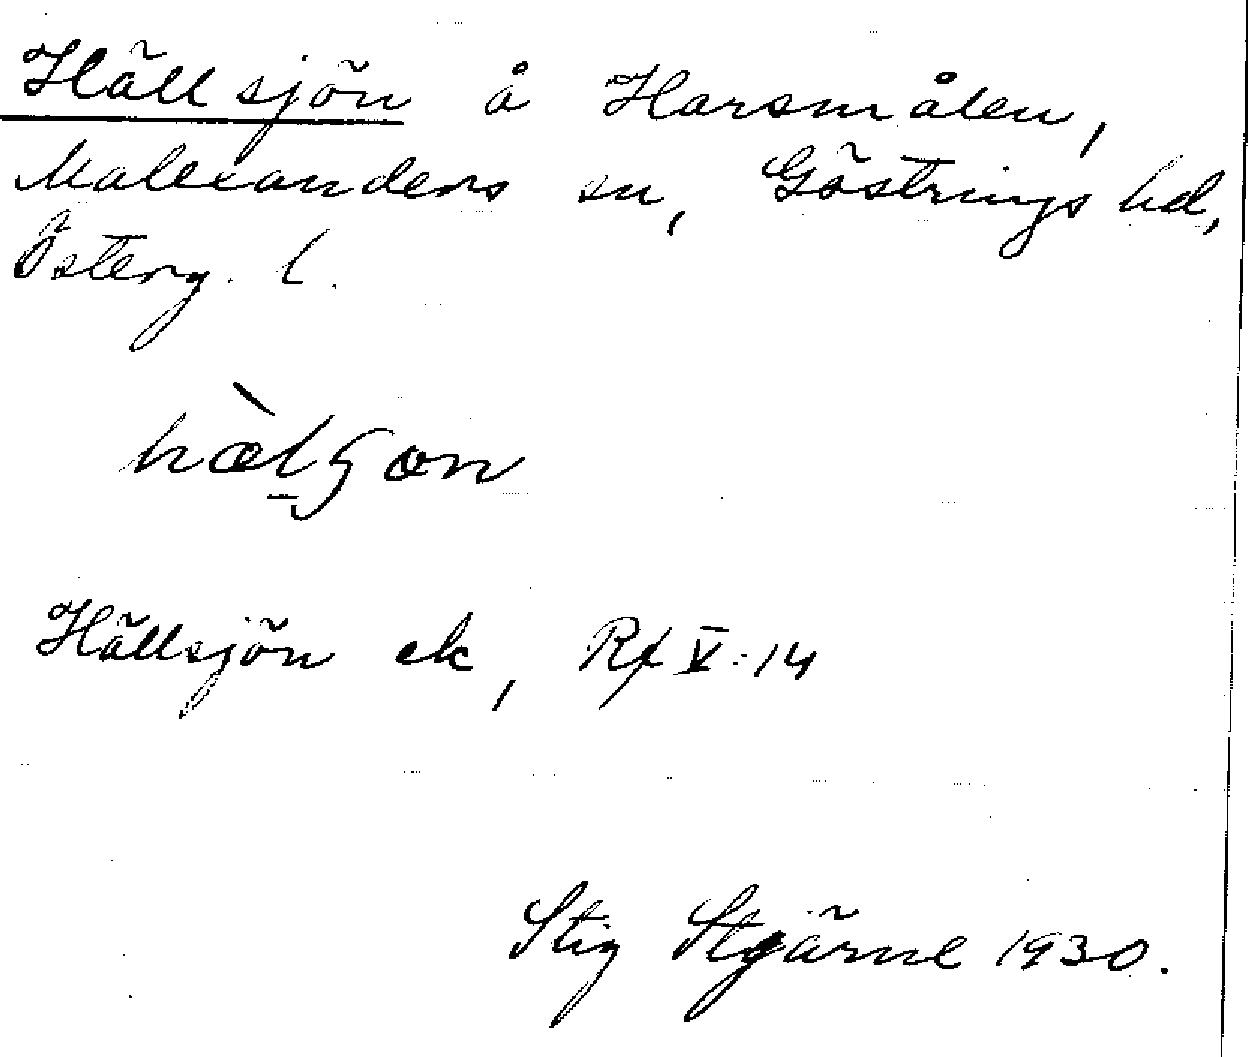 Hällsjön å Harsmålen,
Malexanders sn, Göstrings hd,
Österg. l.
hæ̀lʃon
Hällsjön ek, Rf V:14
Stig Stjärne 1930.